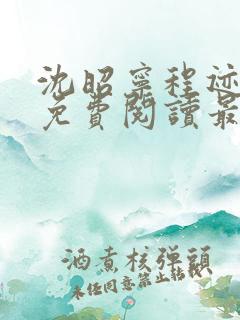 沈昭寧程迹
免費閱讀最
酒煮核弹頭
未经同意禁止转载